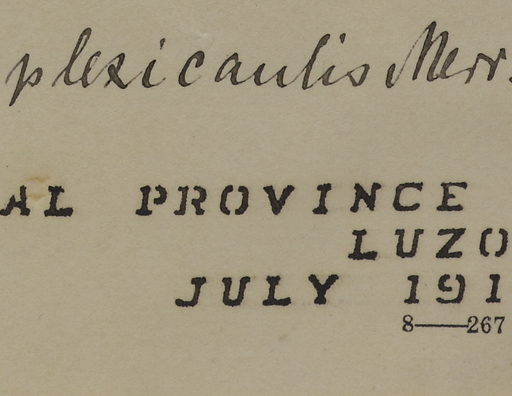 plexicaulis Merr.
AL PROVINCE
LUZO
JULY 191
8—267